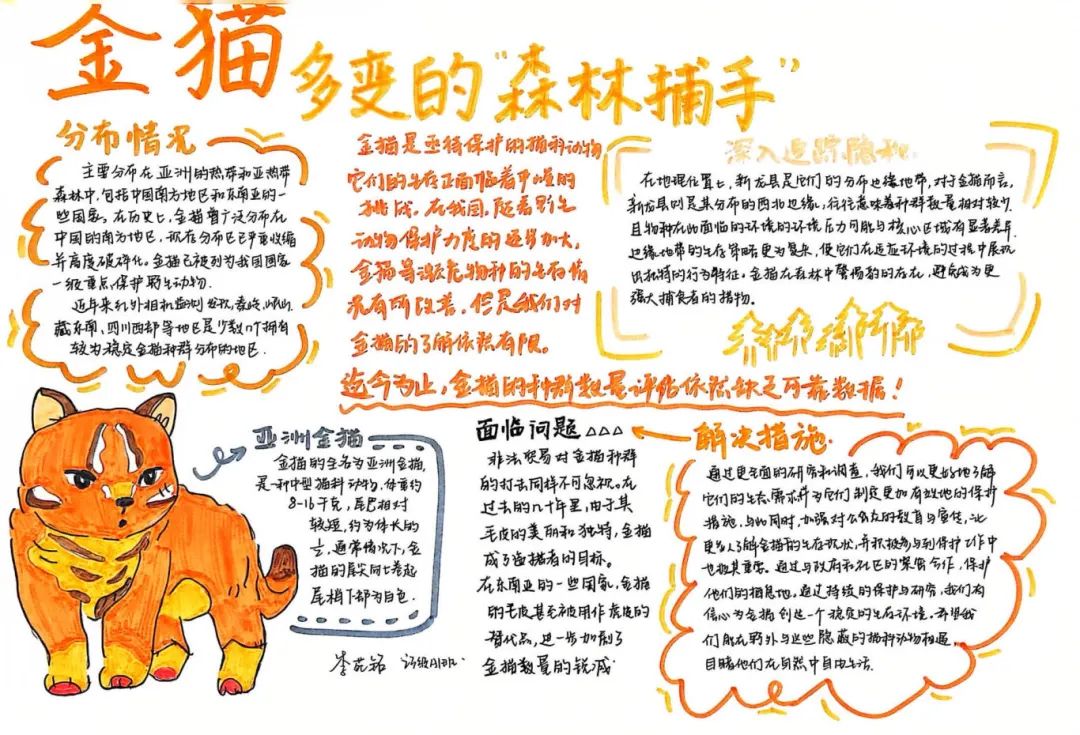 金猫
多变的“森林捕手”
分布情况
主要分布在亚洲的热带和亚热带
森林中,包括中国南方地区和东南亚的一
些国家。在历史上,金猫曾广泛分布在
中国的南方地区,现在分布区已严重收缩
并高度破碎化。金猫已被列为我国国家
一级重点保护野生动物.
近年来红外相机监测发现,秦岭,岷山,
藏东南,四川西部等地区是少数几个拥有
较为稳定金猫种群分布的地区.
金猫是亟待保护的猫科动物
它们的生存正面临着严峻的
挑战。在我国,随着野生
动物保护力度的逐步加大,
金猫等濒危物种的生存情
况有所改善,但是我们对
金猫的了解依然有限。
深入追踪隐秘
在地理位置上,新龙县是它们的分布边缘地带,对于金猫而言,
新龙县则是其分布的西北边缘,往往意味着种群数量相对较少
且物种在此面临的环境的环境压力可能与核心区域有显著差异.
边缘地带的生存策略更为复杂,使它们在适应环境的过程中展现
出独特的行为特征。金猫在森林中警惕豹的存在,避免成为更
强大捕食者的猎物。
迄今为止,金猫的种群数量评估依然缺乏可靠数据!
亚洲金猫
金猫的全名为亚洲金猫,
是一种中型猫科动物,体重约
8-16千克,尾巴相对
较短,约为体长的
通常情况下,金
猫的尾尖向上卷起
尾梢下部为白色.
面临问题△△△
非法贸易对金猫种群
的打击同样不可忽视。在
过去的几十年里,由于其
毛皮的美丽和独特,金猫
成了盗猎者的目标。
在东南亚的一些国家,金猫
的毛皮甚至被用作虎皮的
替代品,进一步加剧了
金猫数量的锐减.
解决措施.
通过更全面的研究和调查,我们可以更好地了解
它们的生态需求并为它们制定更加有效地的保护
措施,与此同时,加强对公众的教育与宣传,让
更多人了解金猫的生存现状,并积极参与到保护工作中
也极其重要。通过与政府和社区的紧密合作,保护
他们的栖息地。通过持续的保护与研究,我们有
信心为金猫创造一个稳定的生存环境。希望我
们能在野外与这些隐蔽的猫科动物相遇,
目睹他们在自然中自由生活.
李